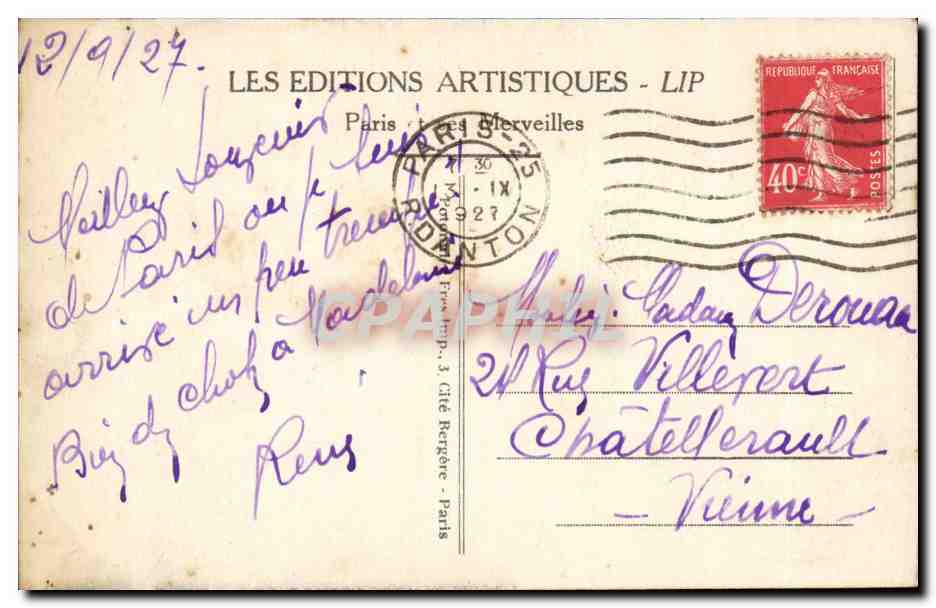 12/9/27.
LES EDITIONS ARTISTIQUES - LIP
Paris et ses Merveilles
REPUBLIQUE FRANÇAISE
40c
POSTES
PARIS - 25
R. DANTON
30
IX
1927
souvenirs
de Paris ou je suis
arrivé un peu
Bien des choses à Madeleine
René
Frès Imp., 3, Cité Bergère - Paris
CPAPHIL
Madame
24 Rue Villevert
Châtellerault
- Vienne -